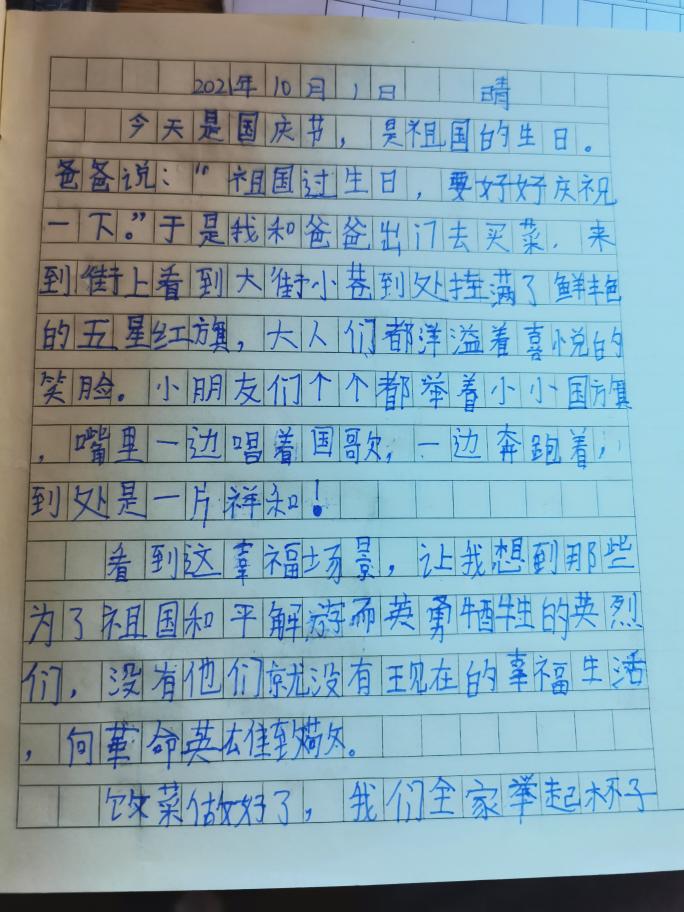 2021年10月1日 晴
今天是国庆节，是祖国的生日。
爸爸说：“祖国过生日，要好好庆祝
一下。”于是我和爸爸出门去买菜．来
到街上看到大街小巷到处挂满了鲜艳
的五星红旗，大人们都洋溢着喜悦的
笑脸。小朋友们个个都举着小小国旗
，嘴里一边唱着国歌，一边奔跑着，
到处是一片祥和！
看到这幸福场景，让我想到那些
为了祖国和平解放而英勇牺牲的英烈
们，没有他们就没有现在的幸福生活
，向革命英雄致敬。
饭菜做好了，我们全家举起杯子